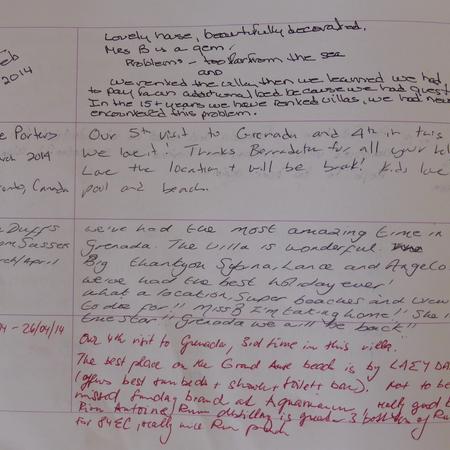 Lovely house, beautifully decorated.
Feb
Mrs B is a gem.
2014
Problems - too far from the sea
and
We rented the villa, then we learned we had
to pay for an additional bed because we had guest
In the 15+ years we have rented villas, we had never
encountered this problem.
e Porters
Our 5th visit to Grenada and 4th in this
arch 2014
We love it! Thanks Bernadette for all your hel
Love the location + will be back! Kids love
onto, Canada
pool and beach.
Duffs
We've had the most amazing time in
om Sussex
Grenada. The villa is wonderful.
rch/April
Big thankyou Sybrna, Lance and Angelo.
we've had the best holiday ever!
what a location, super beaches and view
to die for!! Miss B I'm taking home!! She i
true star!! Grenada we will be back!!
04 - 26/04/14
Our 4th visit to Grenada, 3rd time in this villa.
The best place on the Grand Anse beach is by LAZY DA
(offers best sunbeds + shower + toilet + bar). Not to be
missed Sunday brand at Aquarium, really good
Antoine Rum distillery is great 3 bottles of Ru
for 84 EC, really nice Rum punch